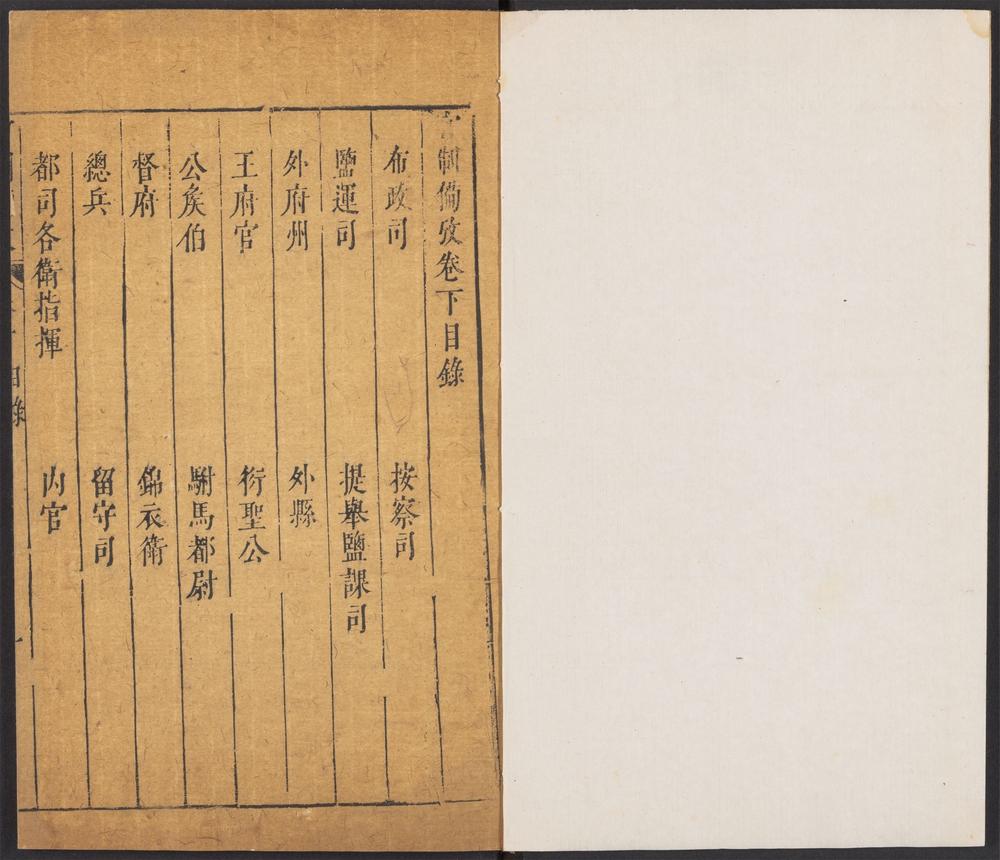 官制備攷卷下目錄
布政司 按察司
鹽運司 提舉鹽課司
外府州 外縣
王府官 衍聖公
公矦伯 駙馬都尉
督府 錦衣衛
總兵 留守司
都司各衛指揮 內官
目錄